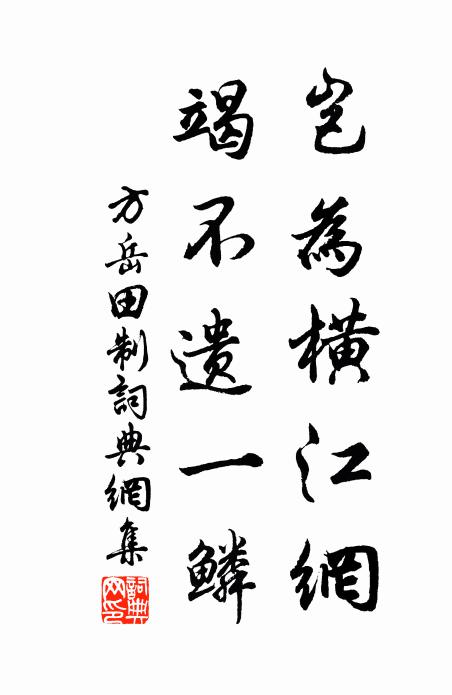 岂為橫江網
竭不遺一鱗
方岳田制詞典網集
詞典網印